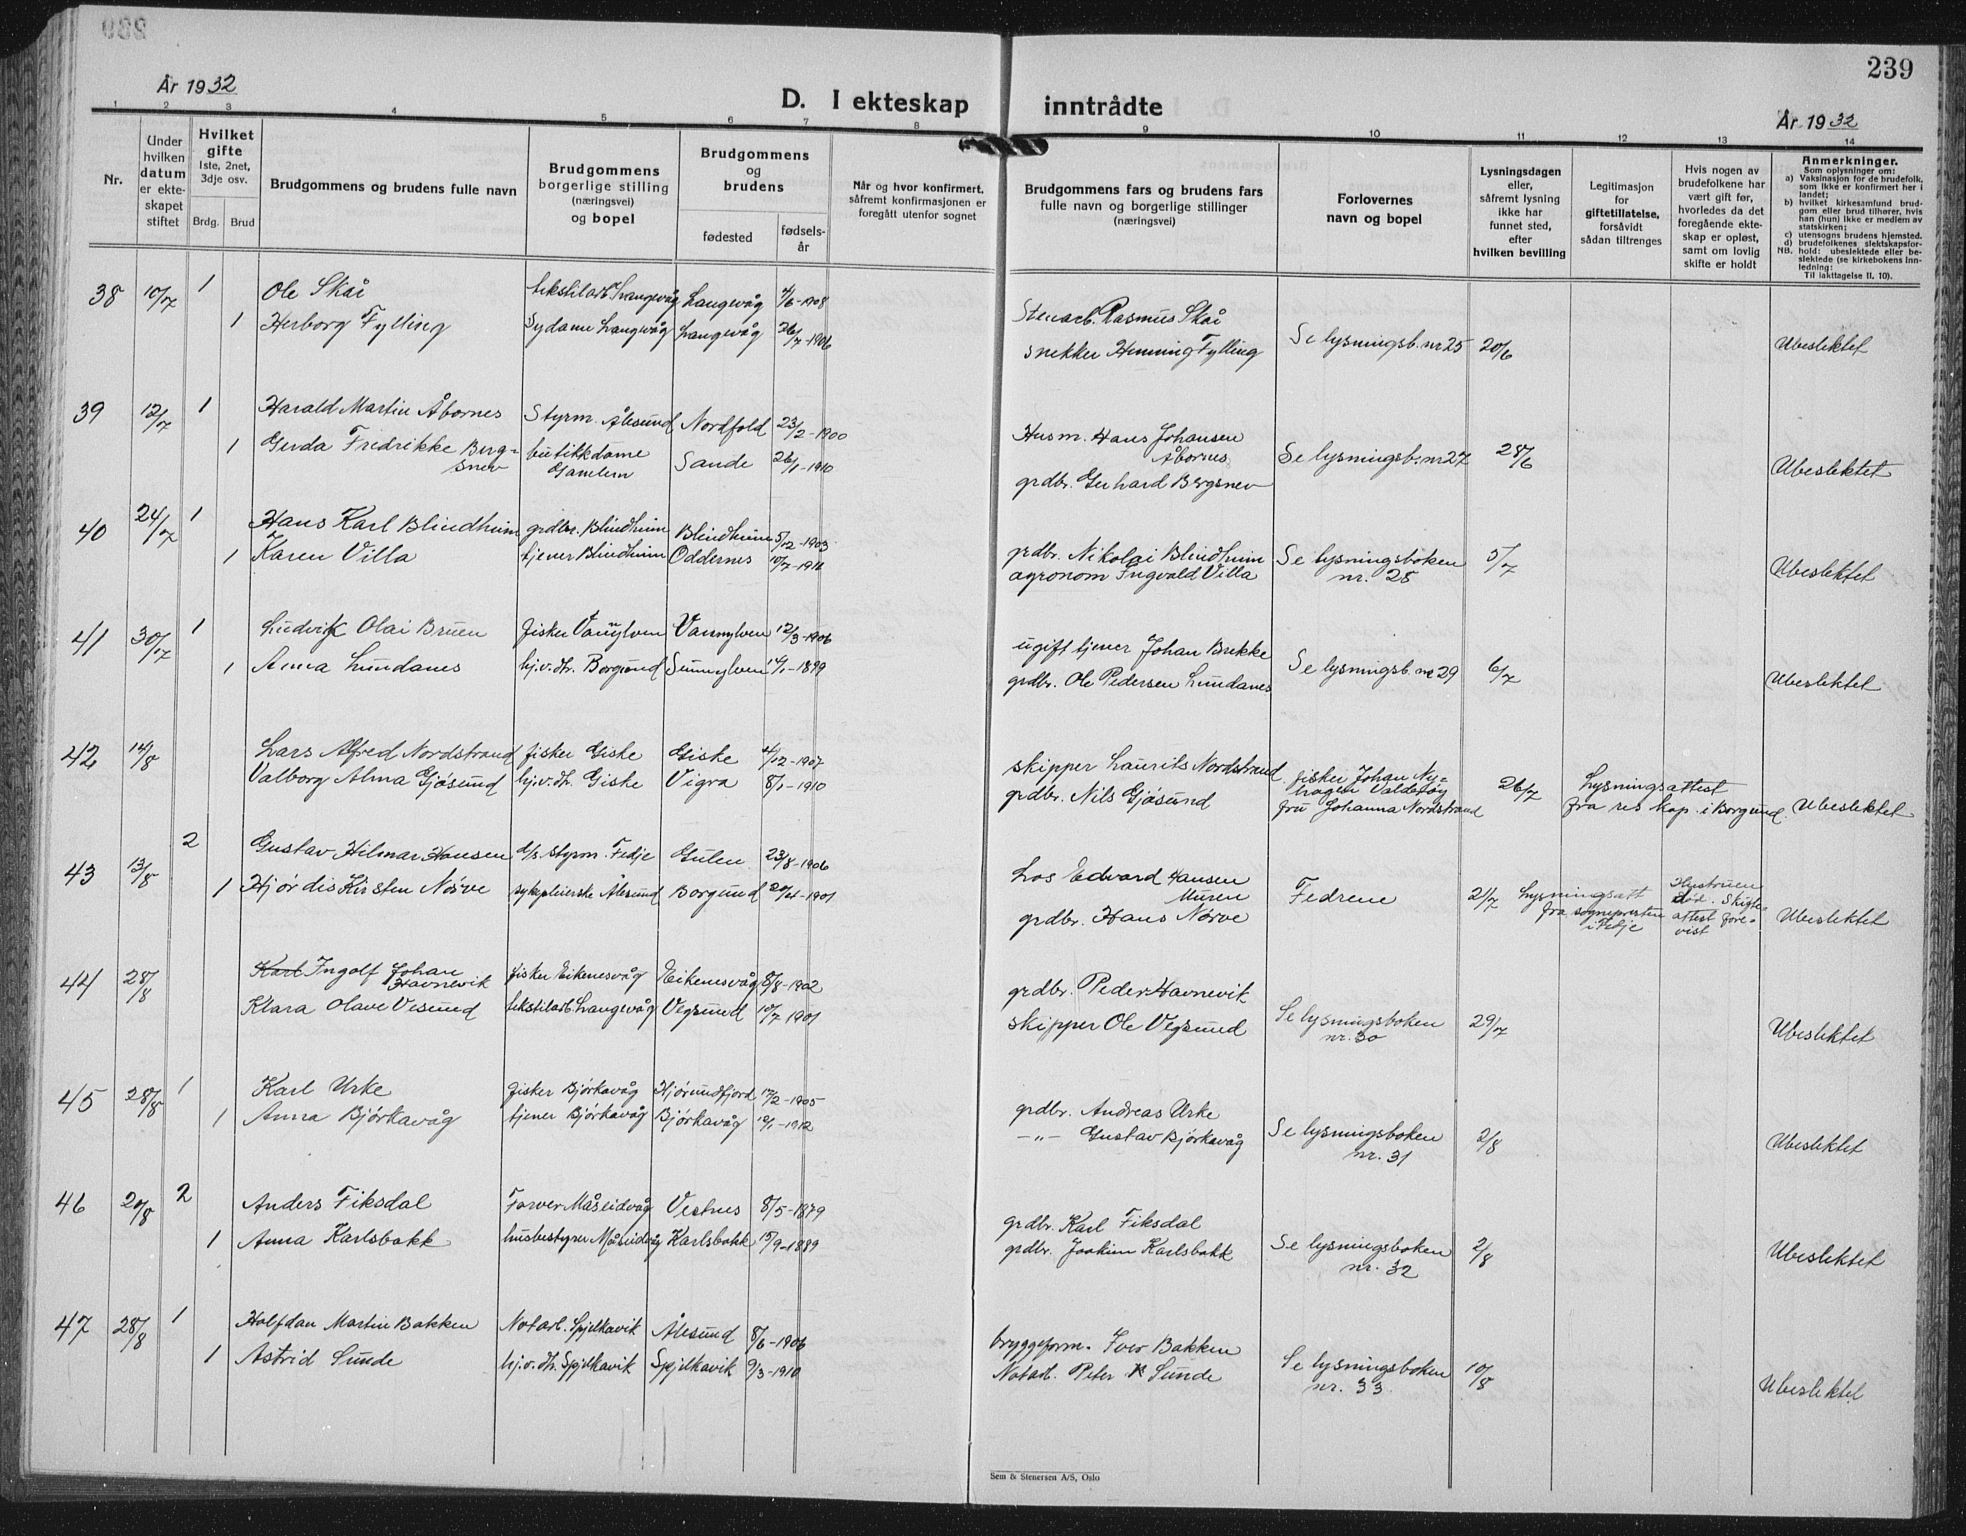 239
År 1932
D. I ekteskap inntrådte
År 1932
1 2 3 4 5 6 7 8 9 10 11 12 13 14
Nr.
Under hvilken datum er ekteskapet stiftet
Hvilket gifte 1ste, 2net, 3dje osv.
Brdg. Brud
Brudgommens og brudens fulle navn
Brudgommens borgerlige stilling (næringsvei) og bopel
Brudgommens og brudens
fødested
fødselsår
Når og hvor konfirmert, såfremt konfirmasjonen er foregått utenfor sognet
Brudgommens fars og brudens fars fulle navn og borgerlige stillinger (næringsvei)
Forlovernes navn og bopel
Lysningsdagen eller, såfremt lysning ikke har funnet sted, efter hvilken bevilling
Legitimasjon for giftetillatelse, forsåvidt sådan tiltrenges
Hvis nogen av brudefolkene har vært gift før, hvorledes da det foregående ekteskap er opløst, samt om lovlig skifte er holdt
Anmerkninger.
Som oplysninger om:
a) Vaksinasjon for de brudefolk, som ikke er konfirmert her i landet;
b) hvilket kirkesamfund brudgom eller brud tilhører, hvis han (hun) ikke er medlem av statskirken;
c) utensogns brudens hjemsted.
d) brudefolkenes slektskapsforhold: ubeslektede eller beslektede (se kirkebokens innledning:
NB. Til iakttagelse II. 10).
38 10/7 1 Ole Skåi tekstilarb. Langevåg Langevåg 4/6-1908 Stenarb. Rasmus Skåi
1 Herborg Fylling Sydame Langevåg Langevåg 26/7-1906 snekker Henning Fylling Se lysningsb. nr 25 20/6 Ubeslektet
39 12/7 1 Harald Martin Åbornes Styrm. Ålesund Nordfold 23/2-1900 Husm. Hans Johansen Åbornes
1 Gerda Fredrikke Bergsnev butikkdame Gamlem Sande 26/1-1910 grdbr. Gerhard Bergsnev Se lysningsb. nr 27 28/6 Ubeslektet
40 24/7 1 Hans Karl Blindheim grdbr. Blindheim Blindheim 5/12-1903 grdbr. Nikolai Blindheim
1 Karen Villa tjener Blindheim Oddernes 10/7-1911 agronom Ingvald Villa Se lysningsboken nr. 28 5/7 Ubeslektet
41 30/7 1 Ludvik Olai Bruen fisker Vannylven Vannylven 12/3-1906 ugift tjener Johan Brekke
1 Anna Lundanes hj.v.dt. Borgund Sunnylven 14/1-1899 grdbr. Ole Pedersen Lundanes Se lysningsb. nr 29 6/7 Ubeslektet
42 14/8 Lars Alfred Nordstrand fisker Giske Giske 4/12-1907 skipper Laurits Nordstrand
Valborg Alma Gjøsund hj.v.dt. Giske Vigra 8/1-1910 grdbr. Nils Gjøsund fisker Johan Nyhagen Valderøy fru Johanna Nordstrand 26/7 Lysningsattest fra res kap. i Borgund. Ubeslektet
43 13/8 2 Gustav Hilmar Hansen d/s styrm. Fedje Gulen 23/8-1906 Los Edvard Hansen Muren
1 Hjørdis Kirsten Nørve sykepleierske Ålesund Borgund 20/4-1901 grdbr. Hans Nørve Fedrene 2/7 Lysningsatt fra sognepresten i Fedje Hustruen død. Skifteattest forevist Ubeslektet
44 28/8 Karl Ingolf Johan Havnevik fisker Eikenesvåg Eikenesvåg 8/8-1902 grdbr. Peder Havnevik
Klara Olave Vesund tekstilarb. Langevåg Vegsund 10/7 1901 skipper Ole Vegsund Se lysningsboken nr. 30 29/7 Ubeslektet
45 28/8 1 Karl Urke fisker Bjørkavåg Hjørundfjord 17/2-1905 grdbr. Andreas Urke
1 Anna Bjørkavåg tjener Bjørkavåg Bjørkavåg 10/1-1912 —"— Gustav Bjørkavåg Se lysningsboken nr. 31 2/8 Ubeslektet
46 20/8 2 Anders Fiksdal Farver Måseidvåg Vestnes 8/5-1879 grdbr. Karl Fiksdal
1 Anna Karlsbakk husbestyrer Måseidvåg Karlsbakk 15/9-1889 grdbr. Joakim Karlsbakk Se lysningsboken nr. 32 2/8 Ubeslektet
47 28/8 1 Halfdan Martin Bakken Notarb. Spjelkavik Ålesund 8/6-1906 bryggeform. Iver Bakken
1 Astrid Sunde hj.v.dt. Spjelkavik Spjelkavik 9/3-1910 Notarb. Peter K Sunde Se lysningsboken nr. 33 10/8 Ubeslektet
Sem & Stenersen A/S, Oslo